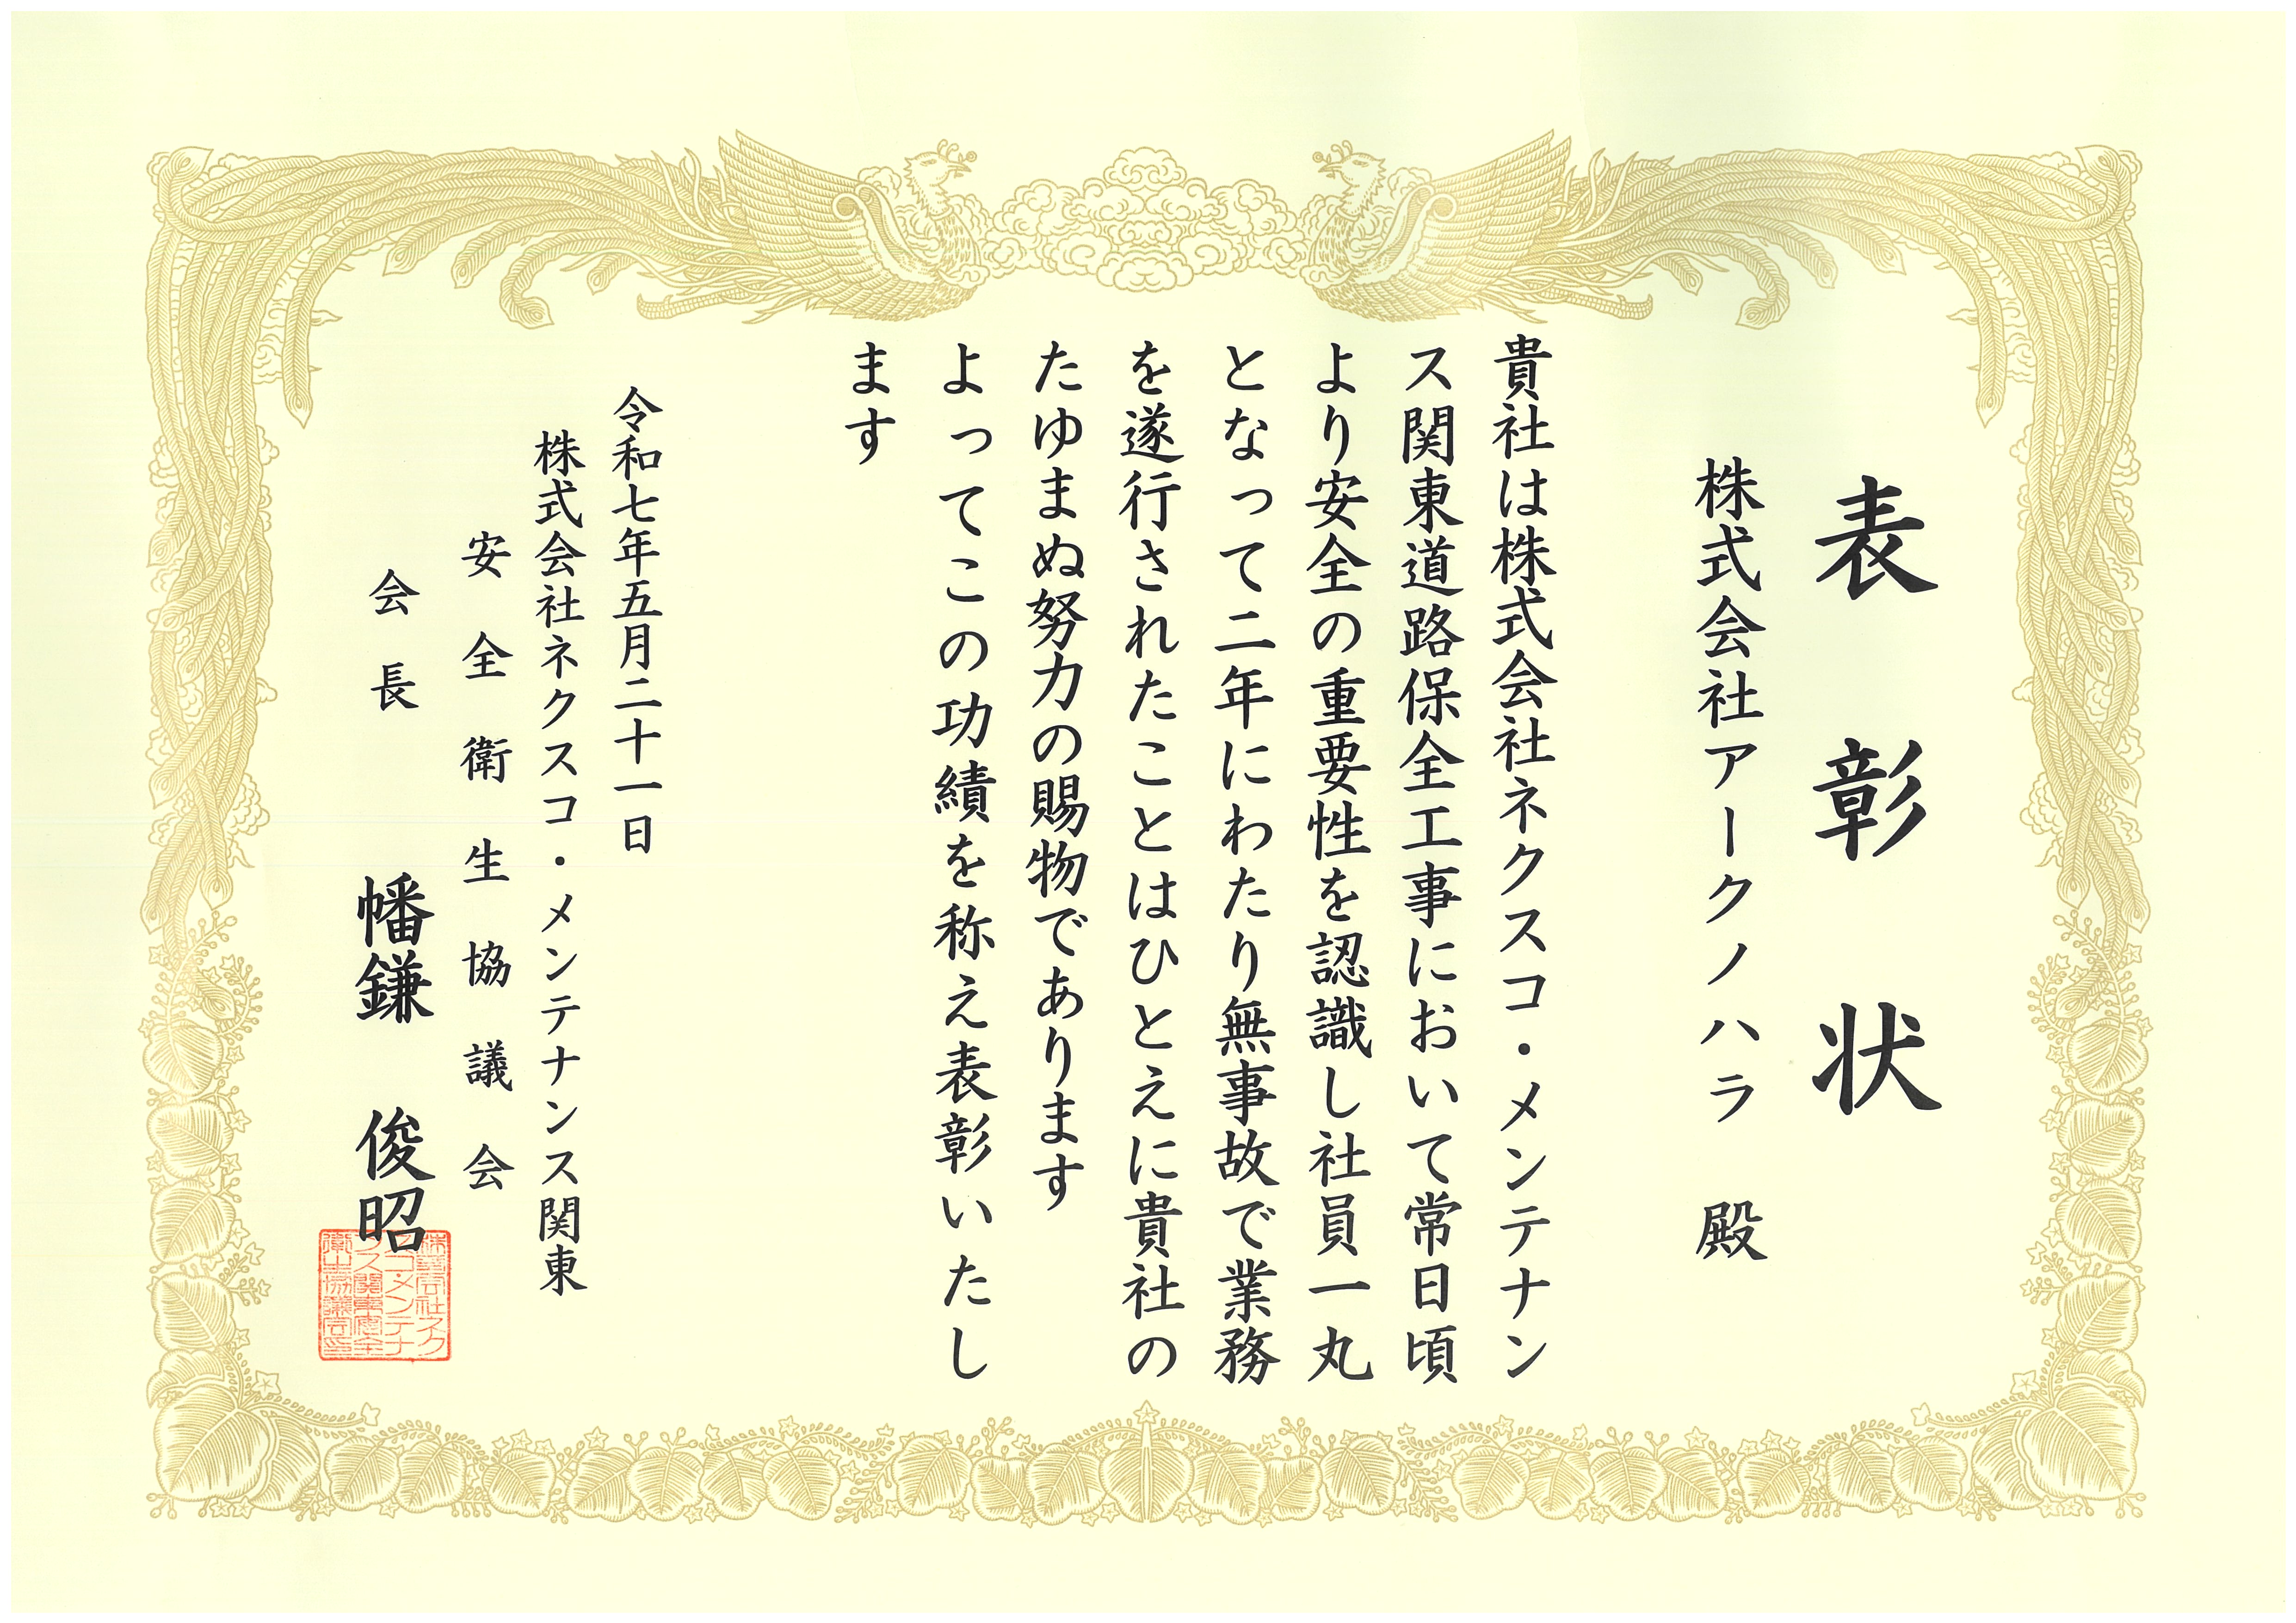 表彰状
株式会社アークノハラ 殿
貴社は株式会社ネクスコ・メンテナン
ス関東道路保全工事において常日頃
より安全の重要性を認識し社員一丸
となって二年にわたり無事故で業務
を遂行されたことはひとえに貴社の
たゆまぬ努力の賜物であります
よってこの功績を称え表彰いたし
ます
令和七年五月二十一日
株式会社ネクスコ・メンテナンス関東
安全衛生協議会
会長 幡鎌 俊昭